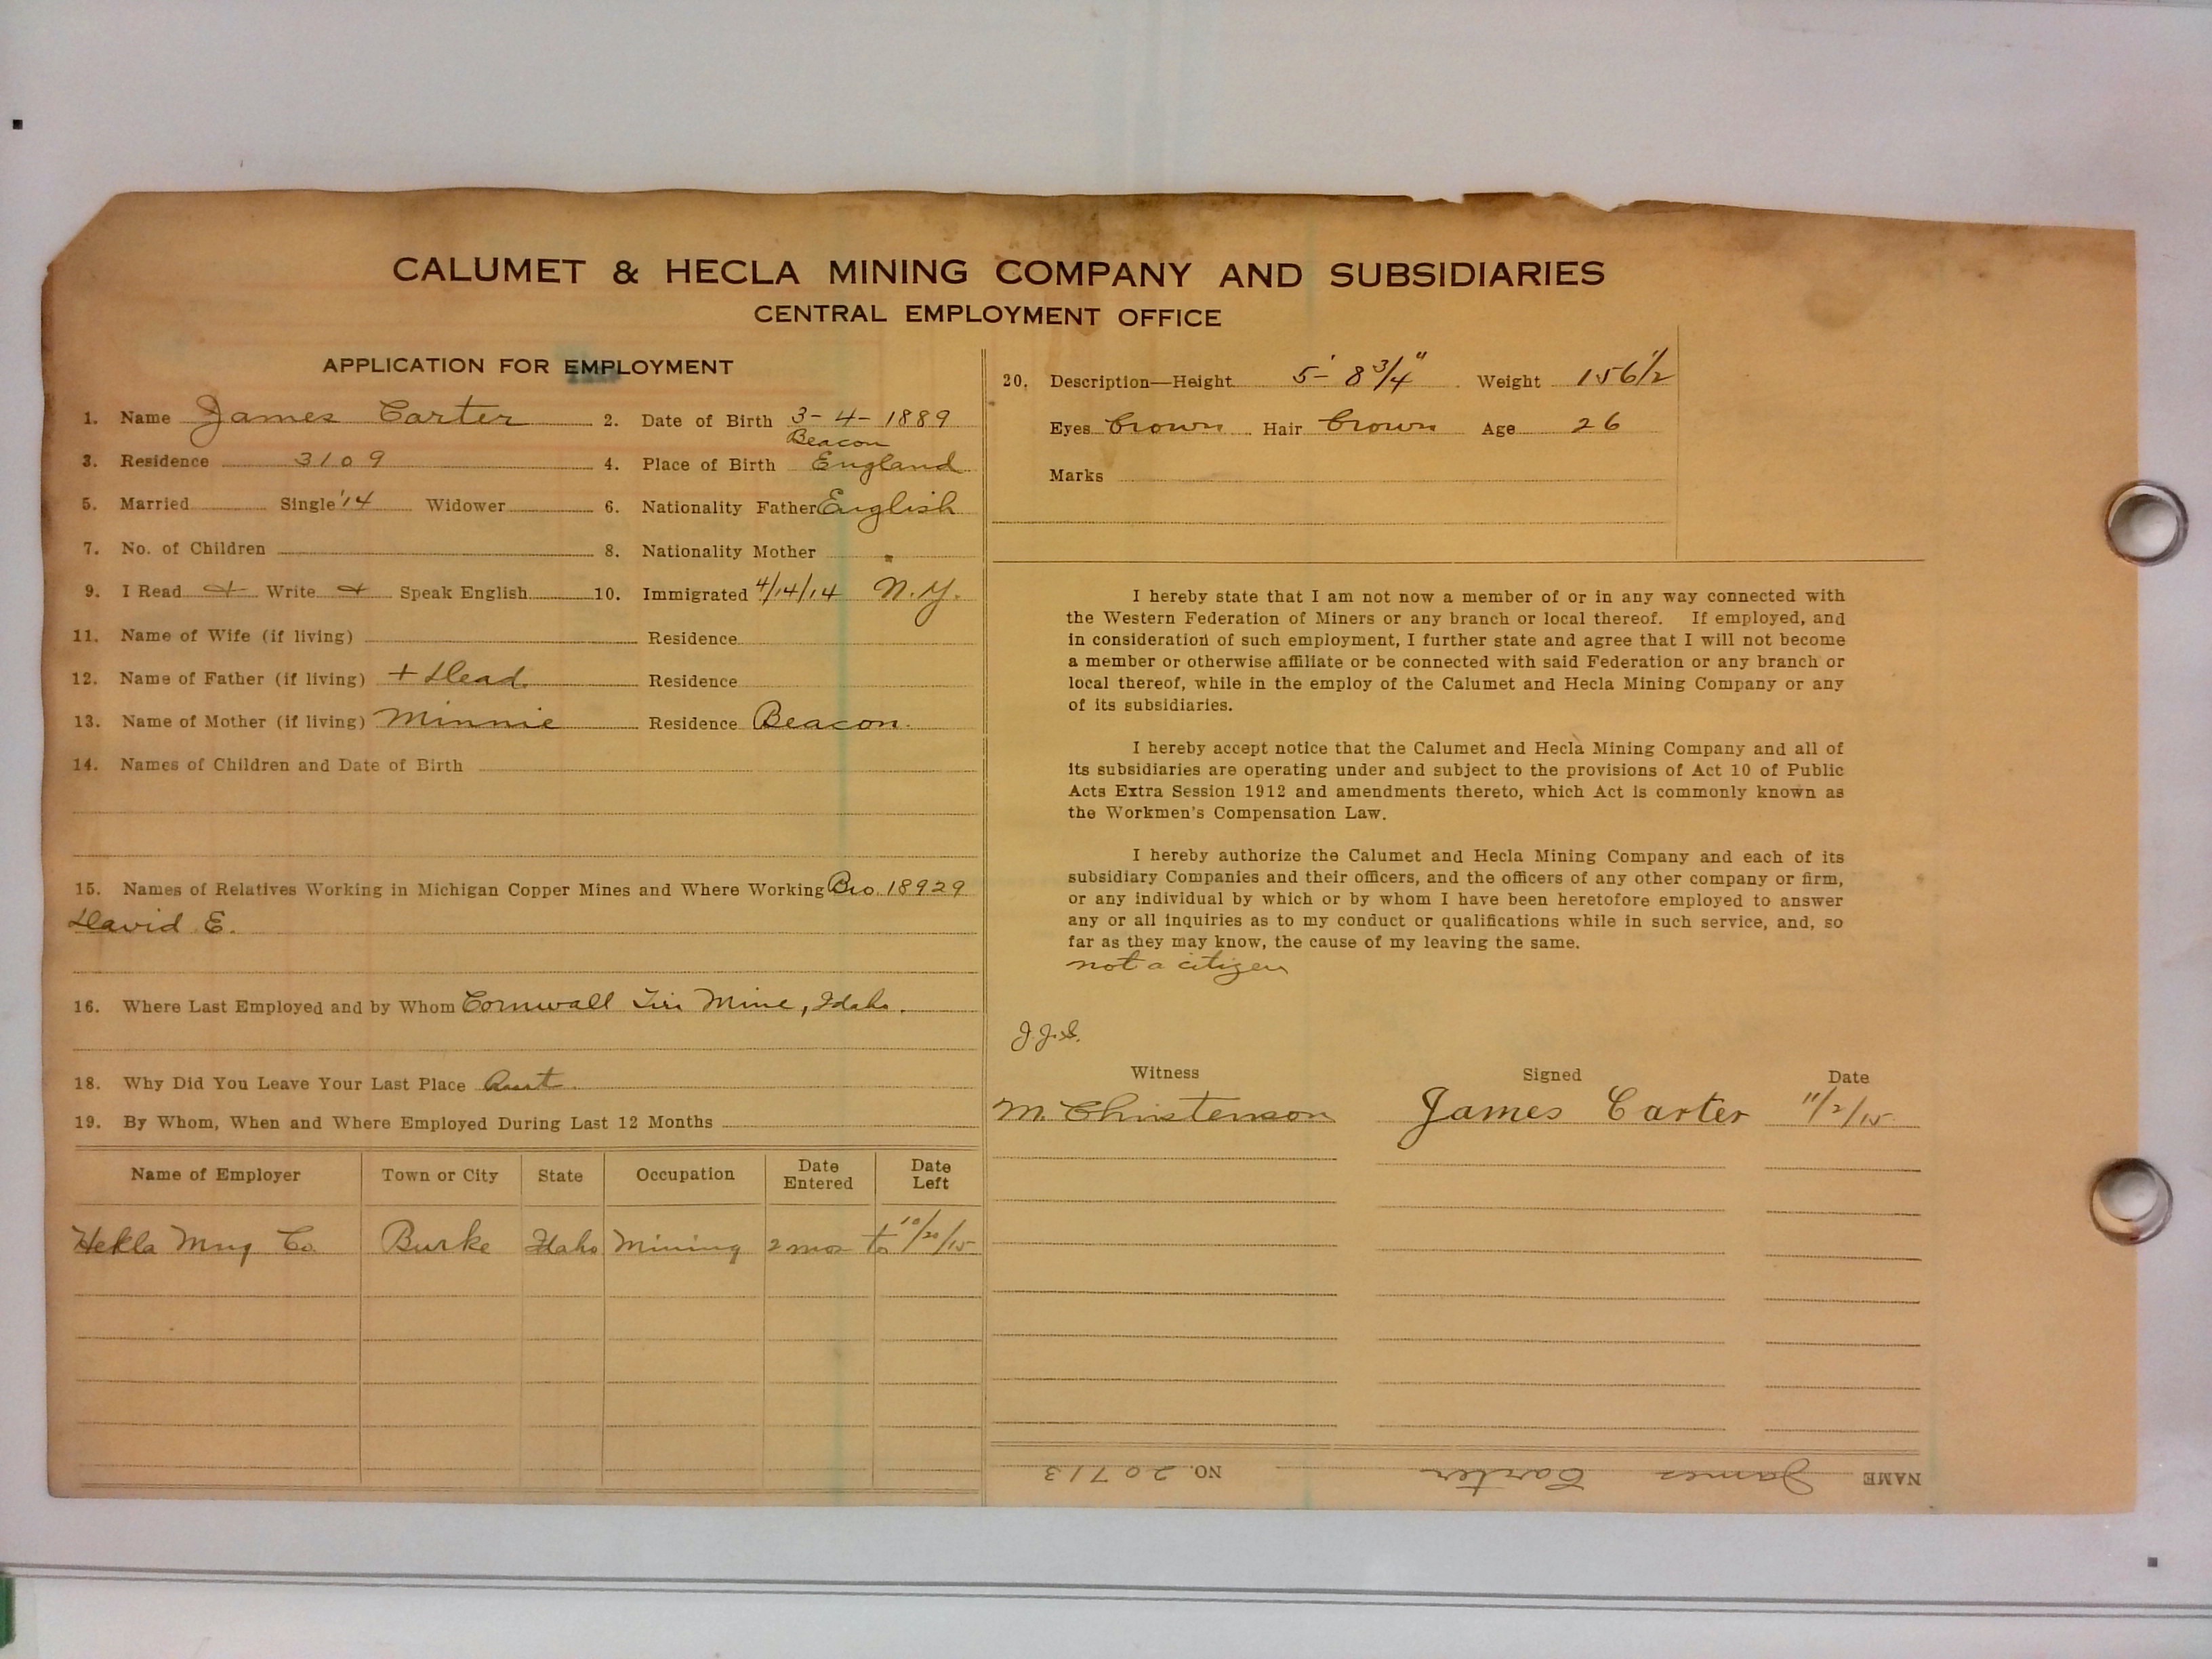 CALUMET & HECLA MINING COMPANY AND SUBSIDIARIES
CENTRAL EMPLOYMENT OFFICE
APPLICATION FOR EMPLOYMENT
1. Name James Carter 2. Date of Birth 3-4-1889
Beacon
3. Residence 3109 4. Place of Birth England
5. Married Single '14 Widower 6. Nationality Father English
7. No. of Children 8. Nationality Mother "
9. I Read + Write + Speak English 10. Immigrated 4/14/14 N.Y.
11. Name of Wife (if living) Residence
12. Name of Father (if living) + Dead. Residence
13. Name of Mother (if living) Minnie Residence Beacon.
14. Names of Children and Date of Birth
15. Names of Relatives Working in Michigan Copper Mines and Where Working Bro. 18929
David E.
16. Where Last Employed and by Whom Cornwall Mine, Idaho.
18. Why Did You Leave Your Last Place
19. By Whom, When and Where Employed During Last 12 Months
Name of Employer Town or City State Occupation Date Entered Date Left
Hekla Mng Co. Burke Idaho Mining 2 mos to 10/20/15
20. Description—Height 5' 8 3/4" Weight 156 1/2
Eyes brown Hair brown Age 26
Marks
I hereby state that I am not now a member of or in any way connected with
the Western Federation of Miners or any branch or local thereof. If employed, and
in consideration of such employment, I further state and agree that I will not become
a member or otherwise affiliate or be connected with said Federation or any branch or
local thereof, while in the employ of the Calumet and Hecla Mining Company or any
of its subsidiaries.
I hereby accept notice that the Calumet and Hecla Mining Company and all of
its subsidiaries are operating under and subject to the provisions of Act 10 of Public
Acts Extra Session 1912 and amendments thereto, which Act is commonly known as
the Workmen's Compensation Law.
I hereby authorize the Calumet and Hecla Mining Company and each of its
subsidiary Companies and their officers, and the officers of any other company or firm,
or any individual by which or by whom I have been heretofore employed to answer
any or all inquiries as to my conduct or qualifications while in such service, and, so
far as they may know, the cause of my leaving the same.
not a citizen
J.J.S.
Witness Signed Date
M. Christenson James Carter 11/2/15
NAME James Carter NO. 20713